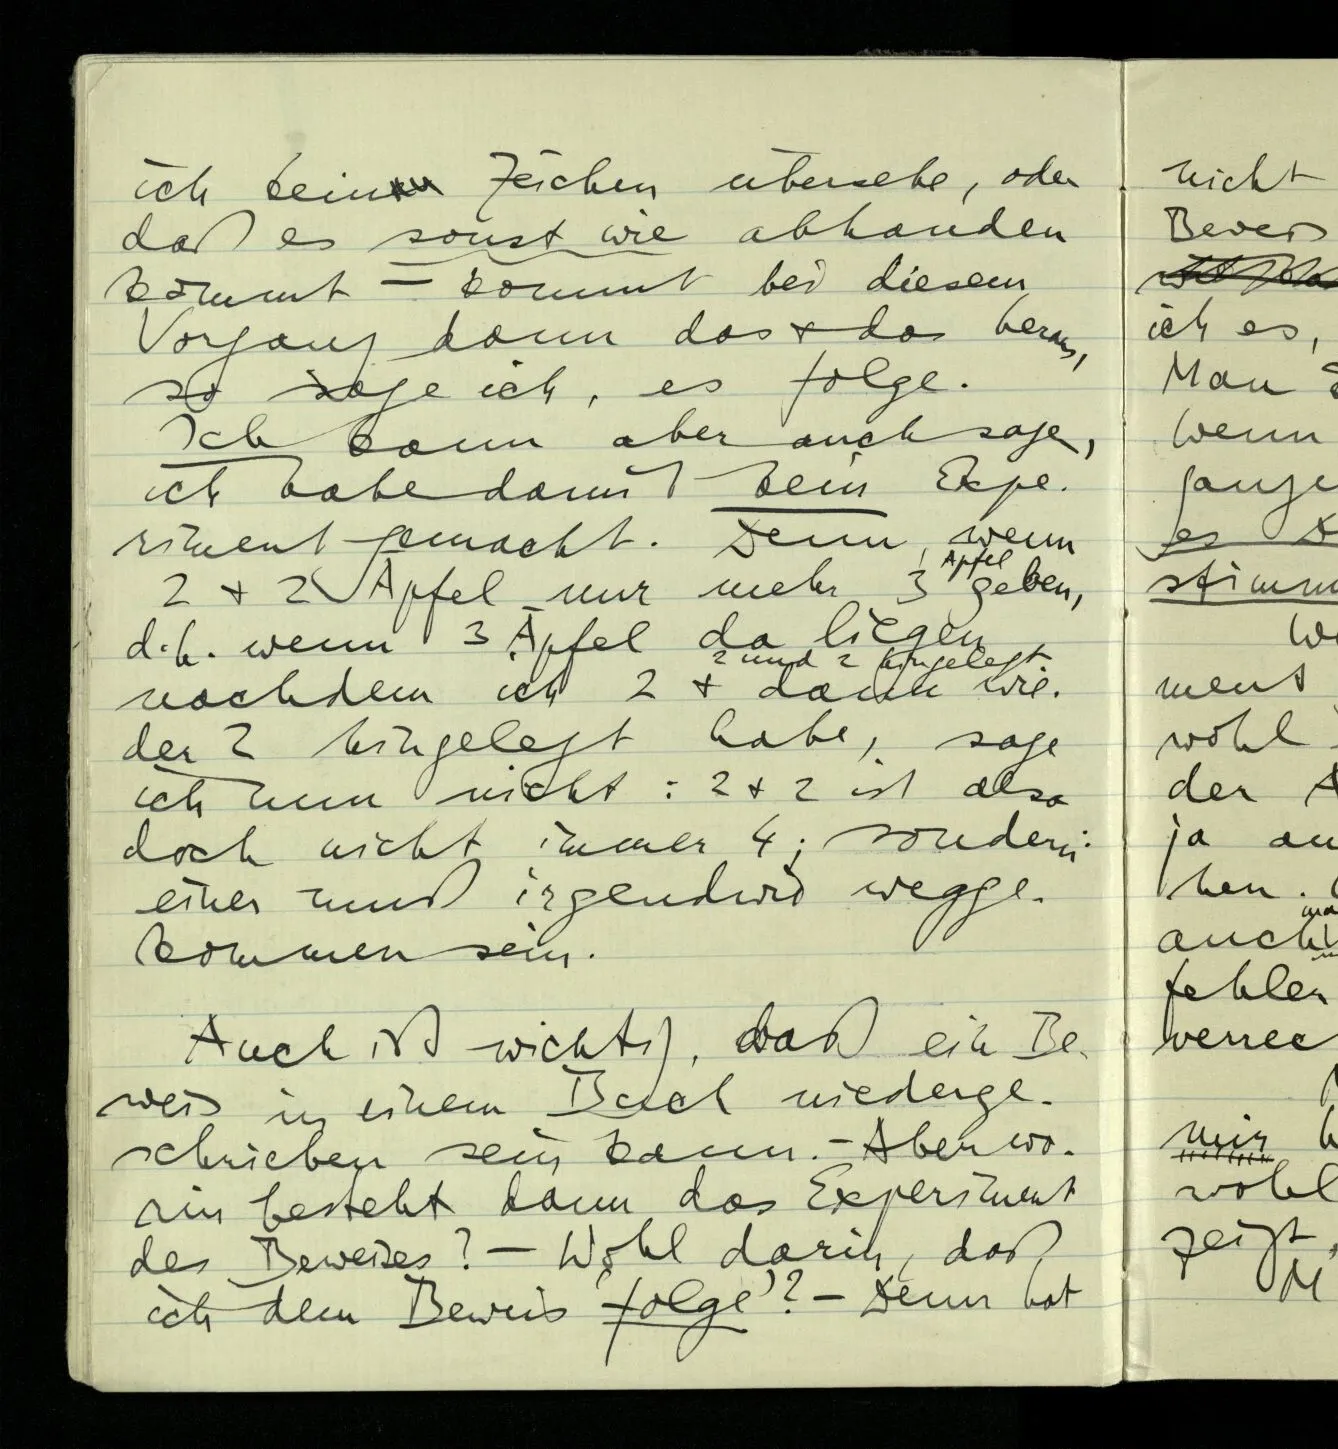 ich kein Zeichen übersehe, oder
daß es sonst wie abhanden
kommt – kommt bei diesem
Vorgang dann das & das heraus,
so sage ich, es folge.
Ich kann aber auch sagen,
ich habe damit kein Expe-
riment gemacht. Denn, wenn
2 + 2 Äpfel nur mehr 3 Äpfel geben,
d.h. wenn 3 Äpfel da liegen
2 und 2 hingelegt
nachdem ich 2 & dann wie-
der 2 hingelegt habe, sage
ich nun nicht: 2 + 2 ist also
doch nicht immer 4; sondern:
einer muß irgendwie wegge-
kommen sein.
Auch ist wichtig, daß ein Be-
weis in einem Buch niederge-
schrieben sein kann. – Aber wo-
rin besteht dann das Experiment
des Beweises? – Wohl darin, daß
ich dem Beweis 'folge'? – Denn hat
nicht
Beweis
ich es,
Man
wenn
es
stimm
ment
wohl
der
ja
hen.
auch
fehler
mir
wohl
zeigt,